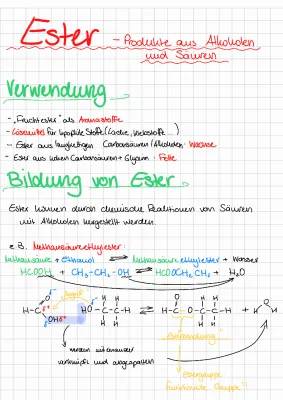 Ester - Produkte aus Alkoholen
und Säuren
Verwendung
- „Fruchtester" als Aromastoffe
- Lösemittel für lipophile Stoffe (Lacke, Klebstoffe...)
- Ester aus langkettigen Carbonsäuren / Alkoholen: Wachse
- Ester aus hohen Carbonsäuren + Glycerin: Fette
Bildung von Ester
Ester können durch chemische Reaktionen von Säuren
mit Alkoholen hergestellt werden.
z.B. Methansäureethylester:
Methansäure + Ethanol ⇌ Methansäureethylester + Wasser
HCOOH + CH3-CH2-OH ⇌ HCOOCH2CH3 + H2O
H-C
O δ-
OH
δ+
HO-C-C-H
H H
H H
⇌
H-C-O-C-C-H
O H H
H H
+
H O H
werden miteinander
verknüpft und abgespalten
Estergruppe
funktionelle Gruppe!!